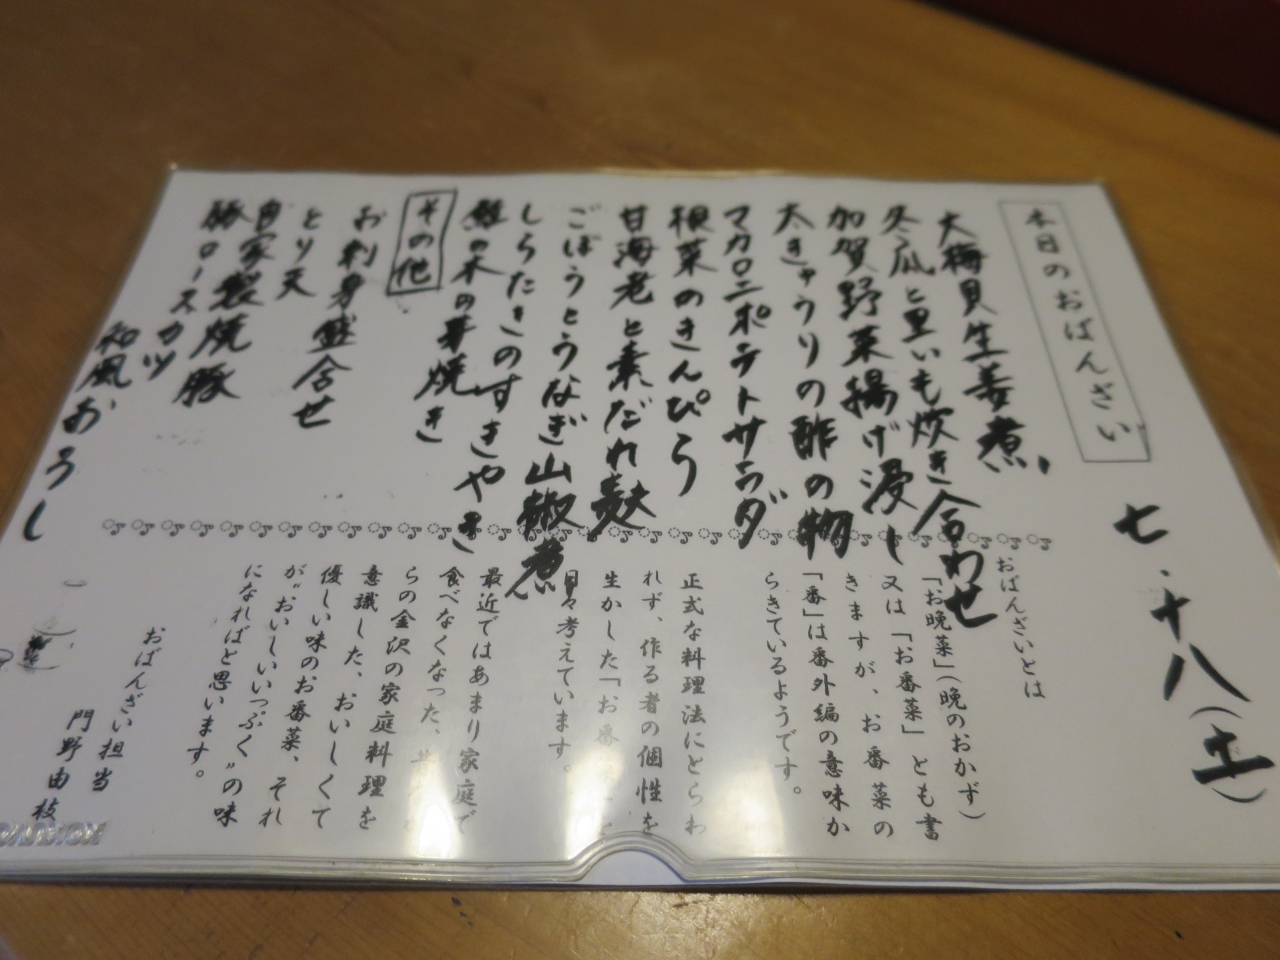 本日のおばんざい
七・十八(土)
大梅貝生姜煮
冬瓜と里いも炊き合わせ
加賀野菜揚げ浸し
太きゅうりの酢の物
マカロニポテトサラダ
根菜のきんぴら
甘海老と素だれ麩
ごぼうとうなぎ山椒煮
しらたきのすきやき
鮭の木の芽焼き
その他
お刺身盛合せ
とり天
自家製焼豚
豚ロースカツ
和風おろし
おばんざいとは
「お晩菜」(晩のおかず)
又は「お番菜」とも書
きますが、お番菜の
「番」は番外編の意味か
らきているようです。
正式な料理法にとらわ
れず、作る者の個性を
生かした「お番
日々考えています。
最近ではあまり家庭で
食べなくなった、昔
らの金沢の家庭料理を
意識した、おいしくて
優しい味のお番菜、それ
が“おいしいいっぷく”の味
になればと思います。
おばんざい担当
門野由枝